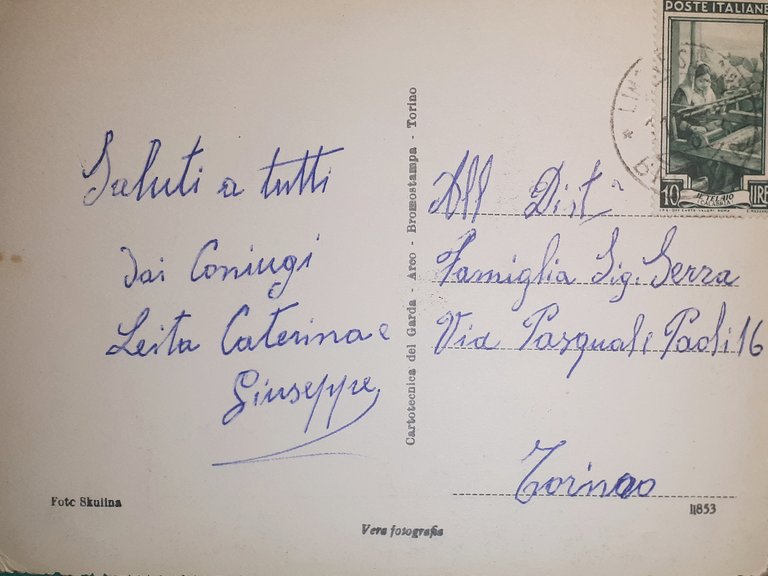 Saluti a tutti
dai Coniugi
Leita Caterina e
Giuseppe
Foto Skulina
Cartotecnica del Garda - Arco - Bromostampa - Torino
Vera fotografia
POSTE ITALIANE
10 IL TELAIO LIRE
All Dist.ª
Famiglia Sig. Serra
Via Pasquale Paoli 16
Torino
11853